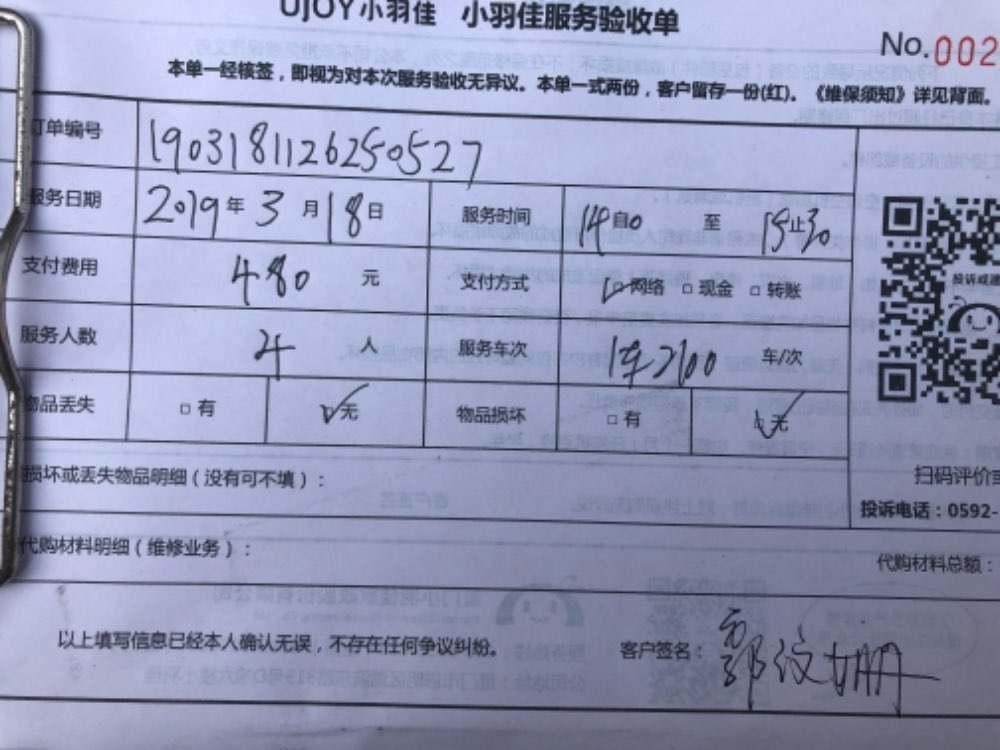 UJOY小羽佳 小羽佳服务验收单
No.002
本单一经核签，即视为对本次服务验收无异议。本单一式两份，客户留存一份(红)。《维保须知》详见背面。
订单编号 1903181126250527
服务日期 2019年3月18日 服务时间 14自0 至 15止30
支付费用 480 元 支付方式 网络 现金 转账
服务人数 4 人 服务车次 车/次
物品丢失 有 无 物品损坏 有 无
损坏或丢失物品明细（没有可不填）：
扫码评价或
投诉电话：0592-
代购材料明细（维修业务）：
代购材料总额：
以上填写信息已经本人确认无误，不存在任何争议纠纷。 客户签名：